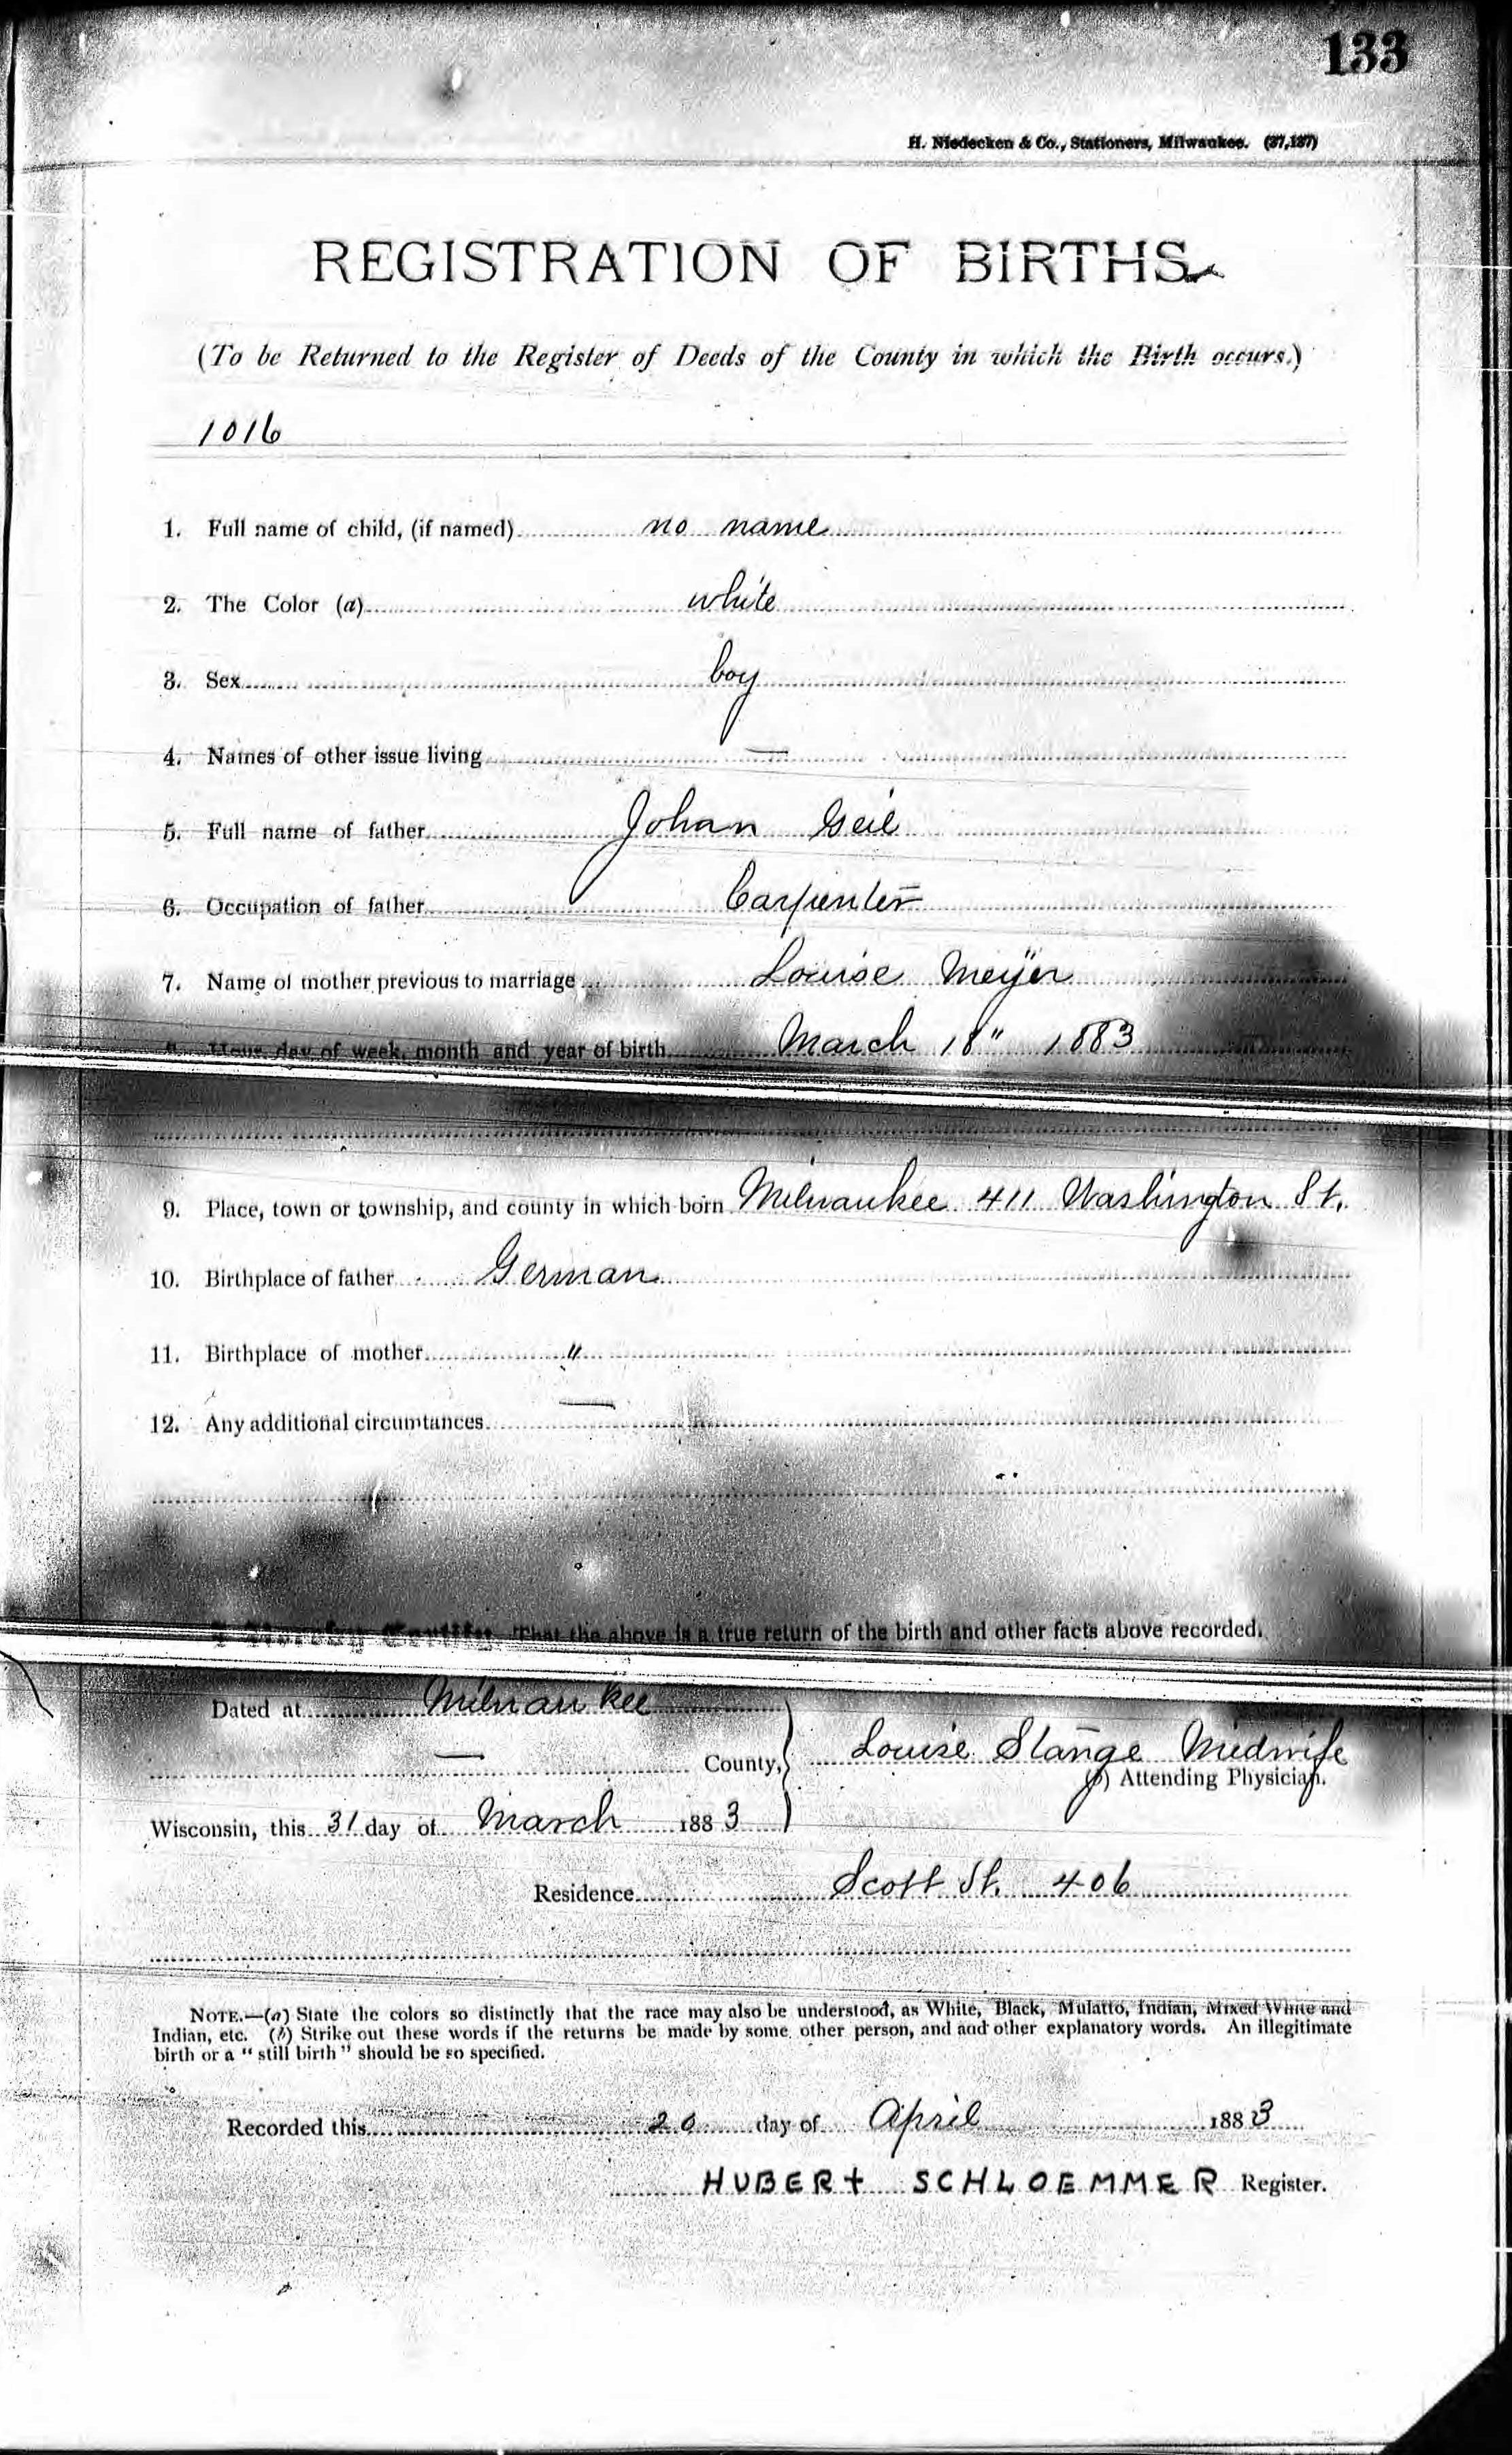 133
H. Niedecken & Co., Stationers, Milwaukee. (37,137)
REGISTRATION OF BIRTHS.
(To be Returned to the Register of Deeds of the County in which the Birth occurs.)
1016
1. Full name of child, (if named) no name
2. The Color (a) white
3. Sex boy
4. Names of other issue living —
5. Full name of father Johan Geil
6. Occupation of father Carpenter
7. Name of mother previous to marriage Louise Meÿer
8. Hour, day of week, month and year of birth March 18" 1883
9. Place, town or township, and county in which born Milwaukee 411 Washington St.
10. Birthplace of father German
11. Birthplace of mother "
12. Any additional circumtances —
I Hereby Certify, That the above is a true return of the birth and other facts above recorded.
Dated at Milwaukee
— County,
Louise Stange Midwife
(b) Attending Physician.
Wisconsin, this 31 day of March 1883
Residence Scott St. 406
NOTE.—(a) State the colors so distinctly that the race may also be understood, as White, Black, Mulatto, Indian, Mixed White and
Indian, etc. (b) Strike out these words if the returns be made by some other person, and add other explanatory words. An illegitimate
birth or a "still birth" should be so specified.
Recorded this 20 day of April 1883
HUBERT SCHLOEMMER Register.